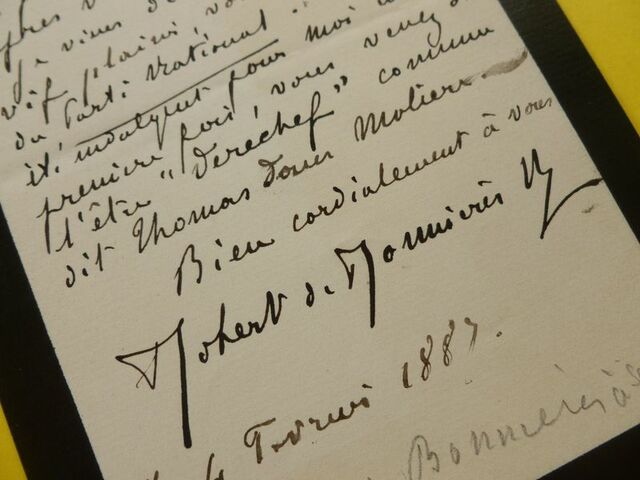 vif plaisir, vo
du Parti National
été indulgent pour moi
première fois, vous venez de
l'être "derechef" comme
dit Thomas dans Molière
Bien cordialement à vous
Robert de Bonnières
Février 1887.
Bonnières à